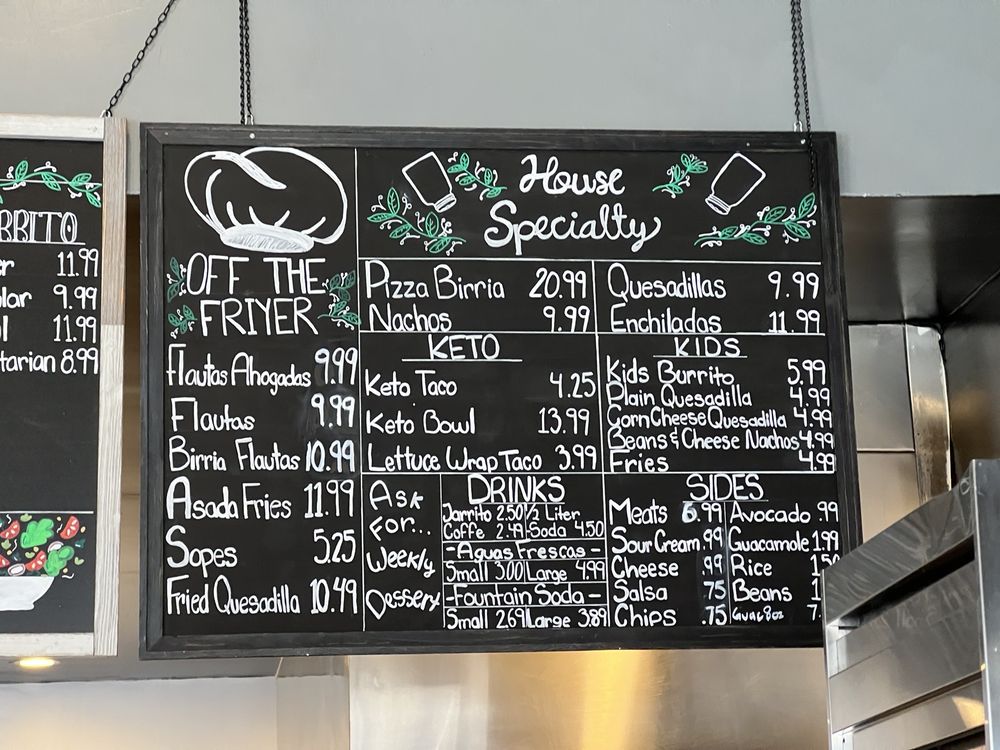 11.99
9.99
11.99
8.99
OFF THE
FRIYER
Flautas Ahogadas 9.99
Flautas 9.99
Birria Flautas 10.99
Asada Fries 11.99
Sopes 5.25
Fried Quesadilla 10.49
House
Specialty
Pizza Birria 20.99
Nachos 9.99
Quesadillas 9.99
Enchiladas 11.99
KETO
Keto Taco 4.25
Keto Bowl 13.99
Lettuce Wrap Taco 3.99
KIDS
Kids Burrito 5.99
Plain Quesadilla 4.99
Corn Cheese Quesadilla 4.99
Beans & Cheese Nachos 4.99
Fries 4.99
Ask
For...
Weekly
Dessert
DRINKS
Jarrito 2.50 1/2 Liter
Coffe 2.49 Soda 4.50
-Aguas Frescas-
Small 3.00 Large 4.99
-Fountain Soda-
Small 2.69 Large 3.89
SIDES
Meats 6.99
Sour Cream .99
Cheese .99
Salsa .75
Chips .75
Avocado .99
Guacamole 1.99
Rice
Beans
Guac 8oz